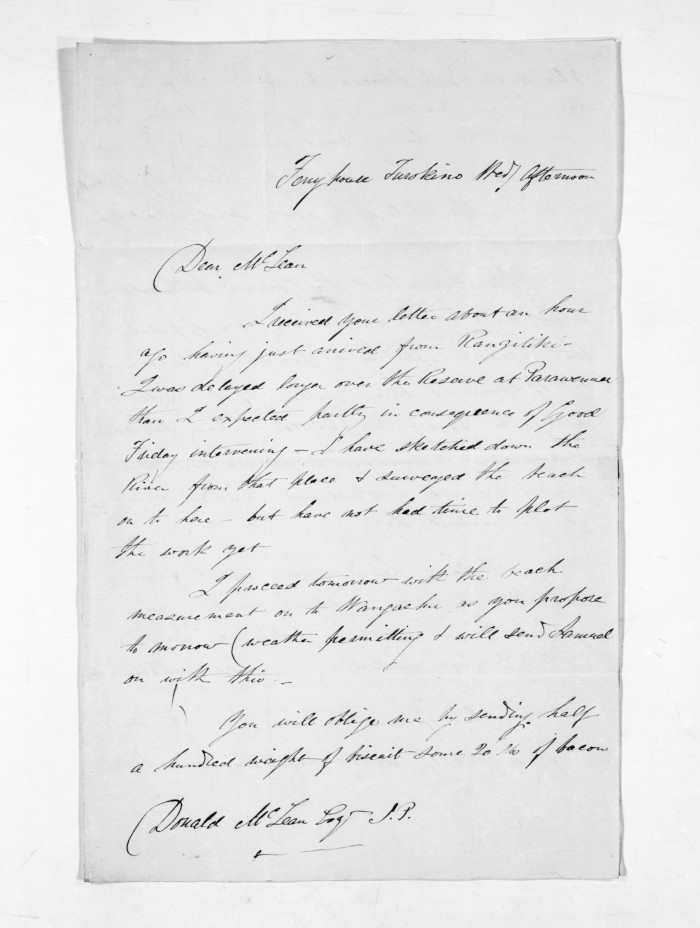 Ferry house Turakino Wedy afternoon
Dear McLean
I received your letter about an hour
ago having just arrived from Rangitiki -
I was delayed longer over the Reserve at Parawenua
than I expected partly in consequence of Good
Friday intervening - I have sketched down the
River from that place & surveyed the beach
on to here - but have not had time to plot
the work yet
I proceed tomorrow with the beach
measurement on to Wangaehu as you propose
to morrow (weather permitting & will send Samuel
on with this -
You will oblige me by sending half
a hundred weight of biscuit some 20 lbs of bacon
Donald McLean Esqr J.P.